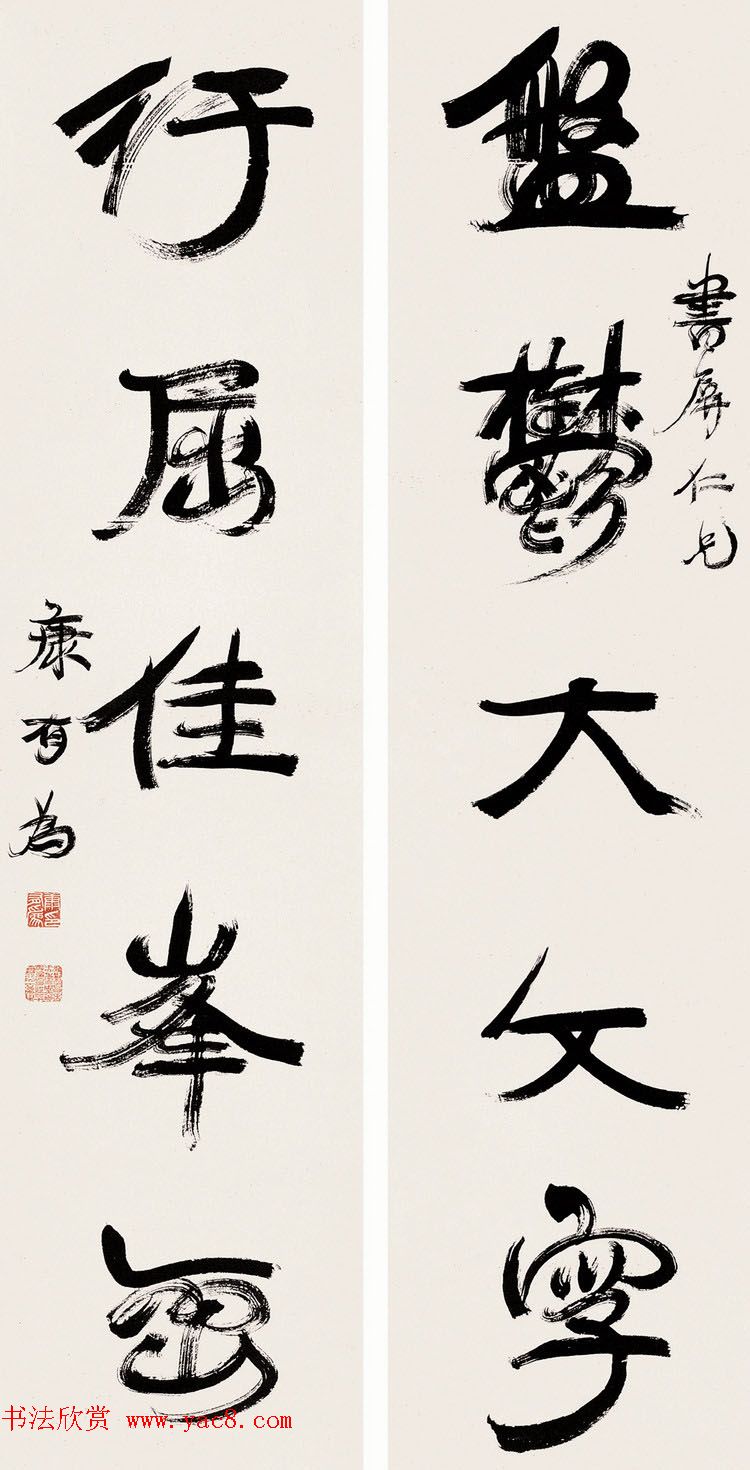 盤鬱大文字
書屏仁兄
行屈佳峯
康有為
书法欣赏 www.yac8.com